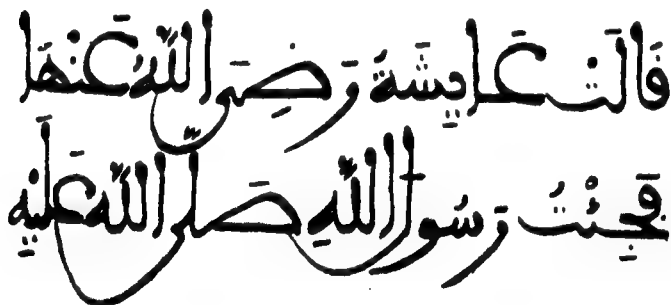 قَالَتْ عَايِشَةُ رَضِيَ اللَّهُ عَنْهَا
فَجِئْتُ رَسُولَ اللَّهِ صَلَّى اللَّهُ عَلَيْهِ